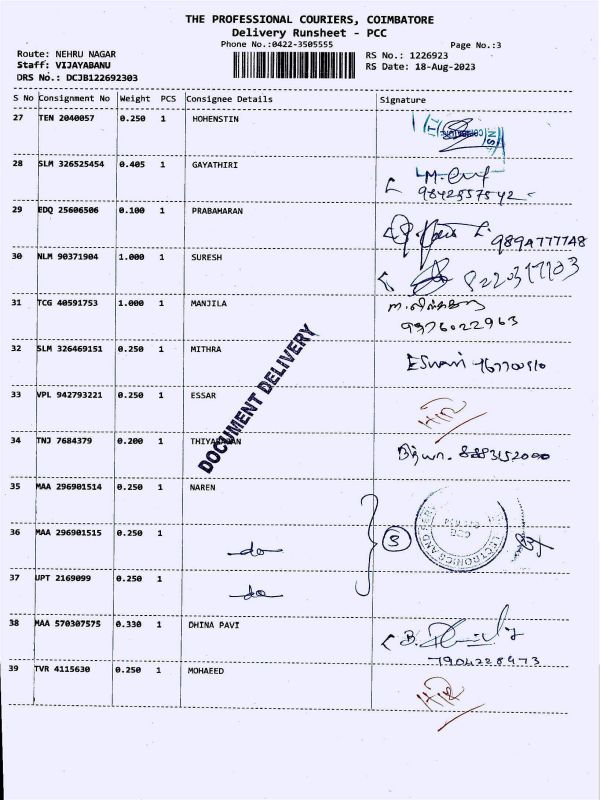 THE PROFESSIONAL COURIERS, COIMBATORE
Delivery Runsheet - PCC
Phone No.:0422-3505555 Page No.:3
Route: NEHRU NAGAR RS No.: 1226923
Staff: VIJAYABANU RS Date: 18-Aug-2023
DRS No.: DCJB122692303
S No Consignment No Weight PCS Consignee Details Signature
27 TEN 2040057 0.250 1 HOHENSTIN
28 SLM 326525454 0.405 1 GAYATHIRI
9842557542
29 EDQ 25606506 0.100 1 PRABAHARAN
989A777748
30 NLM 90371904 1.000 1 SURESH
8220317103
31 TCG 40591753 1.000 1 MANJILA
9976022963
32 SLM 326469151 0.250 1 MITHRA
DOCUMENT DELIVERY
33 VPL 942793221 0.250 1 ESSAR
34 TNJ 7684379 0.200 1 8883152000
35 MAA 296901514 0.250 1 NAREN
36 MAA 296901515 0.250 1 do 3
ELECTRONICS AND
37 UPT 2169099 0.250 1 do
38 MAA 570307575 0.330 1 DHINA PAVI
7904228973
39 TVR 4115630 0.250 1 MOHAEED